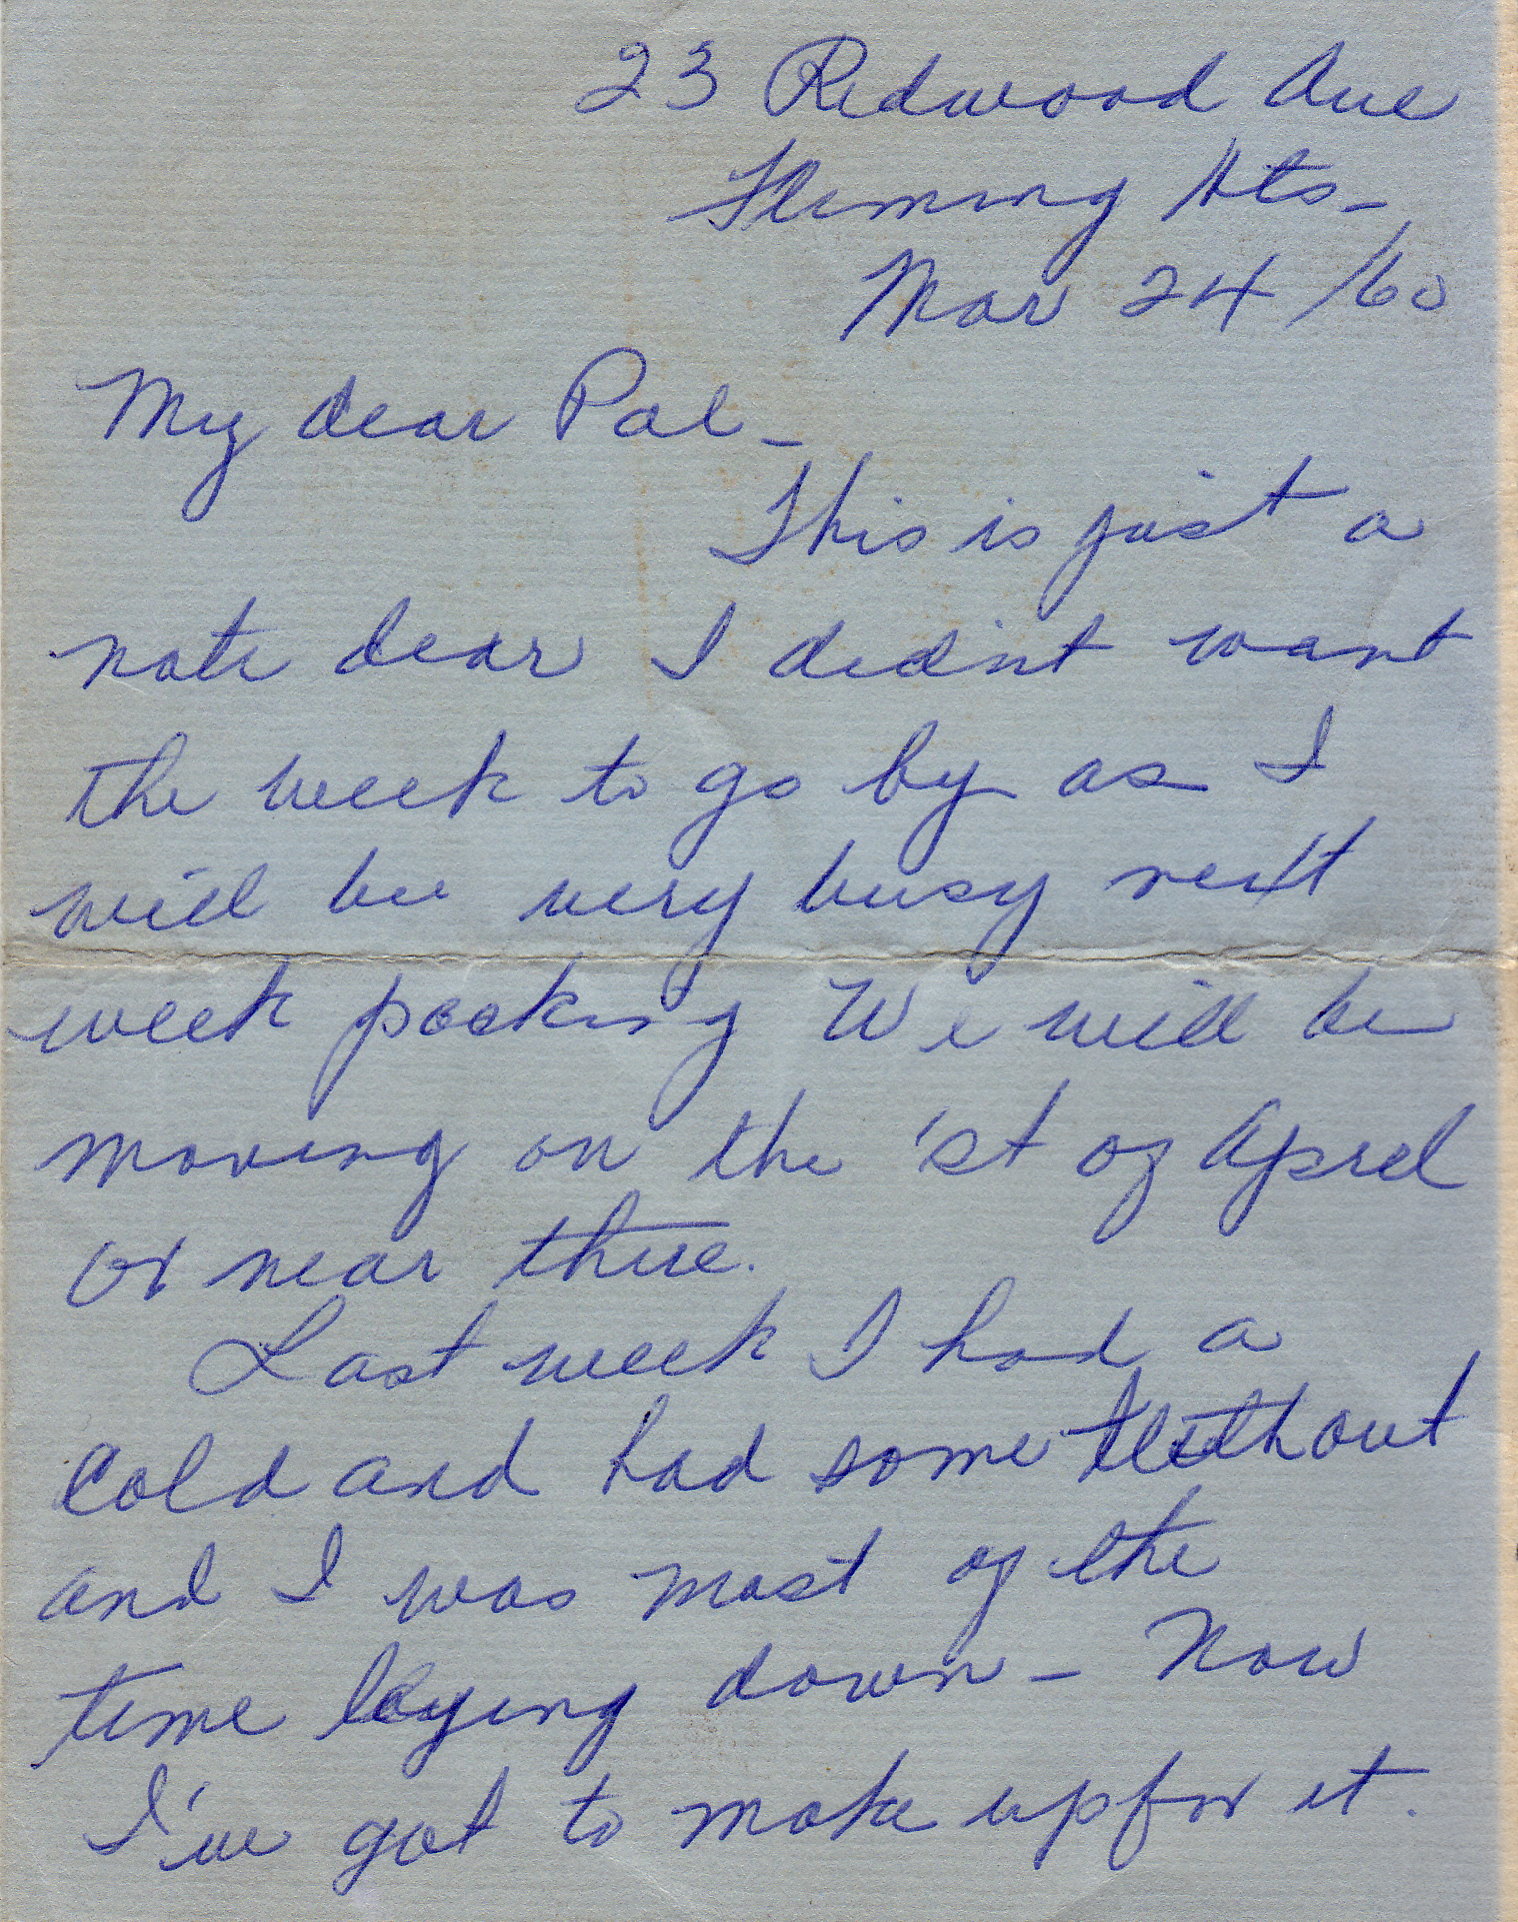 23 Redwood Ave
Fleming Hts-
Mar 24/60
My dear Pal-
This is just a
note dear I didn't want
the week to go by as I
will be very busy next
week packing We will be
moving on the 1st of April
or near there.
Last week I had a
cold and had some teeth out
and I was most of the
time laying down - Now
I've got to make up for it.